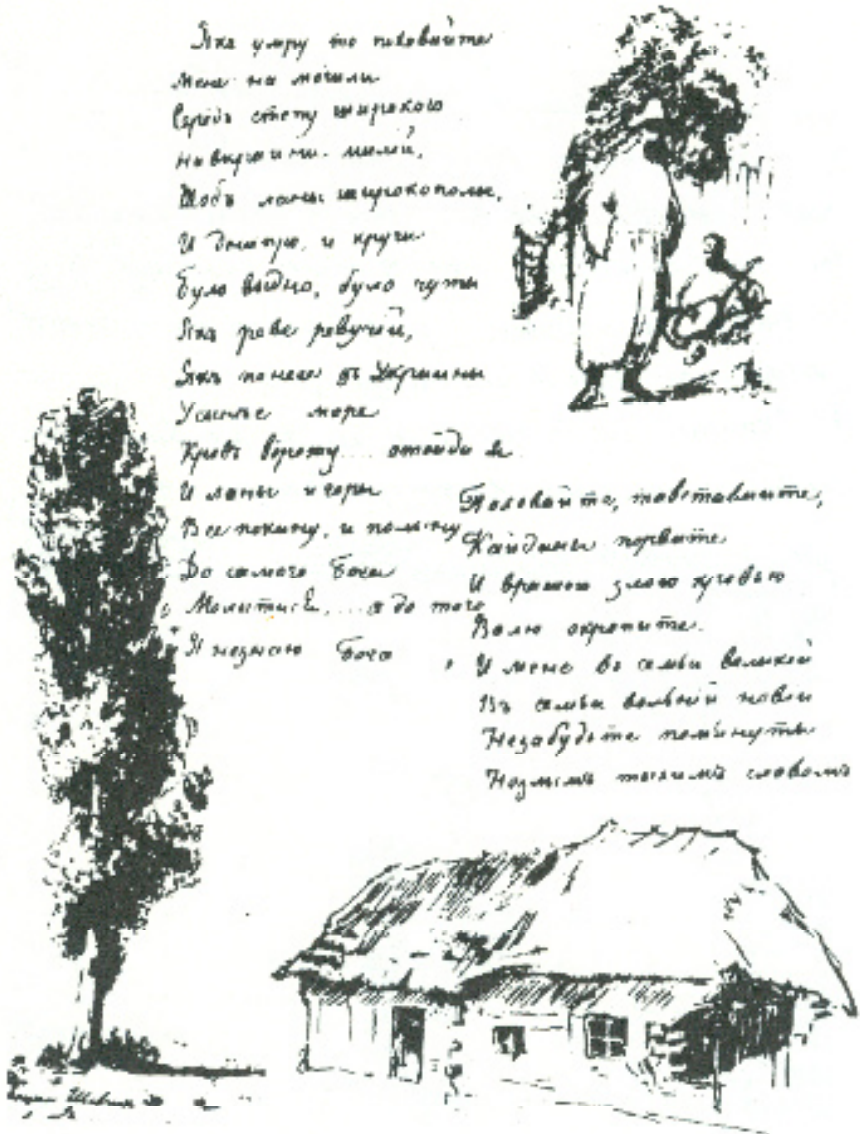 Якъ умру то поховайте
Мене на могыли
Середъ степу широкого
На вкраини милой,
Щобъ ланы широкополы,
И Днипро, и кручи
Було видно, було чуты
Якъ реве ревучий,
Якъ понесе зъ Украины
У синье море
Кровъ ворожу.... отойди я
И ланы и горы
Все покину, и полину
До самого Бога
Молитися, ... а до того
Я незнаю Бога
Поховайте, та вставайте,
Кайданы порвите
И вражою злою кровью
Волю окропите.
И мене въ семьи великой
Въ семьи вольний новий
Незабудьте помянуты
Незлымъ тыхимъ словомъ